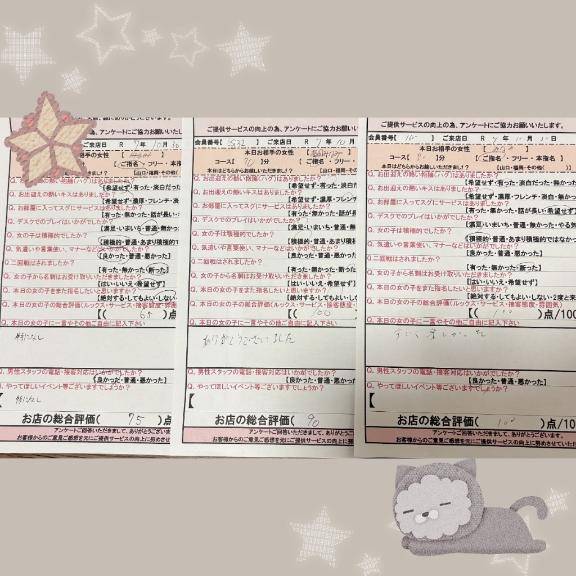 ご来店日 R 7年 10月 30
本日お相手の女性
Q. お出迎えの熱い抱擁（ハグ）はありましたか？
【希望せず・有った・淡白だった
Q. お出迎えの熱いキスはありましたか？
【希望せず・濃厚・フレンチ・淡
Q. お部屋に入ってスグにサービスはありましたか？
【有った・無かった・話が長い
Q. デスクでのプレイはいかがでしたか？
【満足・いまいち・普通・無
Q. 女の子は積極的でしたか？
【積極的・普通・あまり積極的で
Q. 気遣いや言葉使い、マナーなどはいかがでしたか？
【良かった・普通・悪かった】
Q. 二回戦はされましたか？
【有った・無かった・断った】
Q. 女の子から名刺はお受け取りいただきましたか？
【はい・いいえ・希望せず】
Q. 本日の女の子をまた指名したいと思いますか？
【絶対する・してもよい・しない
Q. 本日の女の子の総合評価（ルックス・サービス・接客態度・雰囲
点
Q. 本日の女の子に一言やその他ご自由に記入下さい
特になし
Q. 男性スタッフの電話・接客対応はいかがでしたか？
【良かった・普通・悪かった】
Q. やってほしいイベント等ございますでしょうか？
特になし
お店の総合評価（ 75 ）点
アンケートご回答いただきまして、ありがとうございま
お客様からのご意見ご感想を元にご提供サービスの向上に努めさせ
ご提供サービスの向上の為、アンケートにご協力お願いいた
会員番号【 】 ご来店日 R 7年 10月
本日お相手の女性
コース【 70 】分 【ご指名・フリー
本日はどちらからお越しですか？ 【山口・福岡・その他
Q. お出迎えの熱い抱擁（ハグ）はありましたか？
【希望せず・有った・淡白
Q. お出迎えの熱いキスはありましたか？
【希望せず・濃厚・フレンチ
Q. お部屋に入ってスグにサービスはありましたか？
【有った・無かった・話が長
Q. デスクでのプレイはいかがでしたか？
【満足・いまいち・普通・無
Q. 女の子は積極的でしたか？
【積極的・普通・あまり積極
Q. 気遣いや言葉使い、マナーなどはいかがでしたか？
【良かった・普通・悪かった】
Q. 二回戦はされましたか？
【有った・無かった・断った】
Q. 女の子から名刺はお受け取りいただきましたか？
【はい・いいえ・希望せず】
Q. 本日の女の子をまた指名したいと思いますか？
【絶対する・してもよい・しない
Q. 本日の女の子の総合評価（ルックス・サービス・接客態度
【（ 100 ）点
Q. 本日の女の子に一言やその他ご自由に記入下さい
ありがとうございました
Q. 男性スタッフの電話・接客対応はいかがでしたか？
【良かった・普通・悪かった】
Q. やってほしいイベント等ございますでしょうか？
お店の総合評価（ 90 ）点
アンケートご回答いただきまして、ありがとう
お客様からのご意見ご感想を元にご提供サービスの向上に努め
ご提供サービスの向上の為、アンケートにご協力お願いいたし
会員番号【 】 ご来店日 R 年 月 日
本日お相手の女性
コース【 】分 【ご指名・フリー・本指名】
本日はどちらからお越しですか？ 【山口・福岡・その他（
Q. お出迎えの熱い抱擁（ハグ）はありましたか？
【希望せず・有った・淡白だった・無かっ
Q. お出迎えの熱いキスはありましたか？
【希望せず・濃厚・フレンチ・淡白・無
Q. お部屋に入ってスグにサービスはありましたか？
【有った・無かった・話が長い・希望せず】
Q. デスクでのプレイはいかがでしたか？
【満足・いまいち・普通・無かった・やる気
Q. 女の子は積極的でしたか？
【積極的・普通・あまり積極的ではない
Q. 気遣いや言葉使い、マナーなどはいかがでしたか？
【良かった・普通・悪かった】
Q. 二回戦はされましたか？
【有った・無かった・断った】
Q. 女の子から名刺はお受け取りいただきましたか？
【はい・いいえ・希望せず】
Q. 本日の女の子をまた指名したいと思いますか？
【絶対する・してもよい・しない・2度と来
Q. 本日の女の子の総合評価（ルックス・サービス・接客態度・雰囲気）
【（ 100 ）点/100
Q. 本日の女の子に一言やその他ご自由に記入下さい
Q. 男性スタッフの電話・接客対応はいかがでしたか？
【良かった・普通・悪かった】
Q. やってほしいイベント等ございますでしょうか？
お店の総合評価（ 100 ）点/10
アンケートご回答いただきまして、ありがとうございます。
お客様からのご意見ご感想を元にご提供サービスの向上に努めさせていただ